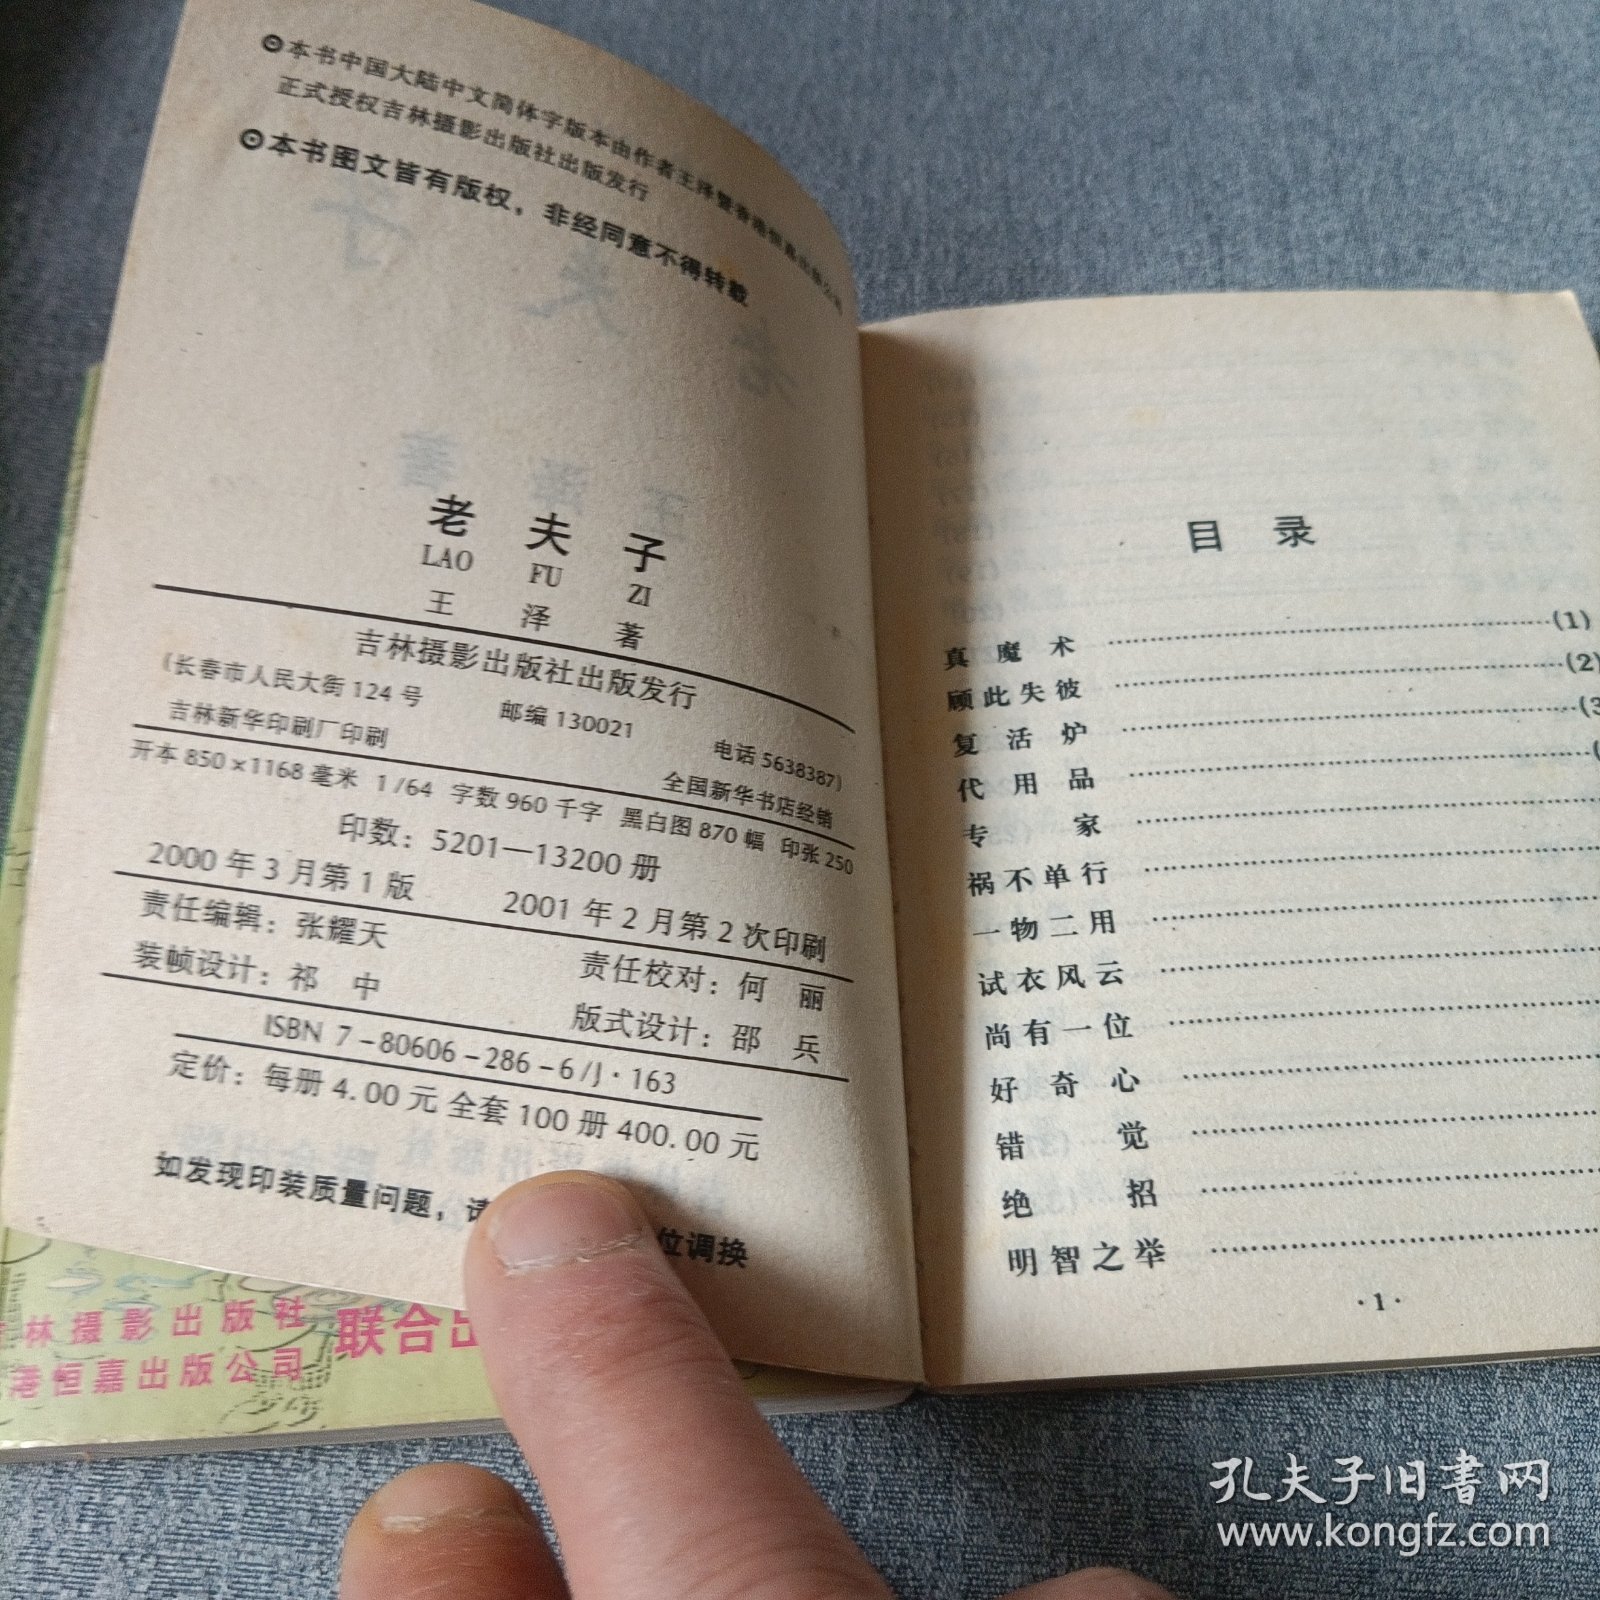 本书中国大陆中文简体字版本由作者王泽暨香港恒嘉出版公司
正式授权吉林摄影出版社出版发行
本书图文皆有版权，非经同意不得转载
老 夫 子
LAO FU ZI
王 泽 著
吉林摄影出版社出版发行
(长春市人民大街 124 号 邮编 130021 电话 5638387)
吉林新华印刷厂印刷 全国新华书店经销
开本 850×1168 毫米 1/64 字数 960 千字 黑白图 870 幅 印张 250
印数：5201—13200 册
2000 年 3 月第 1 版 2001 年 2 月第 2 次印刷
责任编辑：张耀天 责任校对：何 丽
装帧设计：祁 中 版式设计：邵 兵
ISBN 7-80606-286-6/J·163
定价：每册 4.00 元 全套 100 册 400.00 元
如发现印装质量问题，请 位调换
林摄影出版社
港恒嘉出版公司
联合出
目 录
真魔术 (1)
顾此失彼 (2)
复活炉 (3
代用品 (
专家
祸不单行
一物二用
试衣风云
尚有一位
好奇心
错觉
绝招
明智之举
·1·
孔夫子旧書网
www.kongfz.com